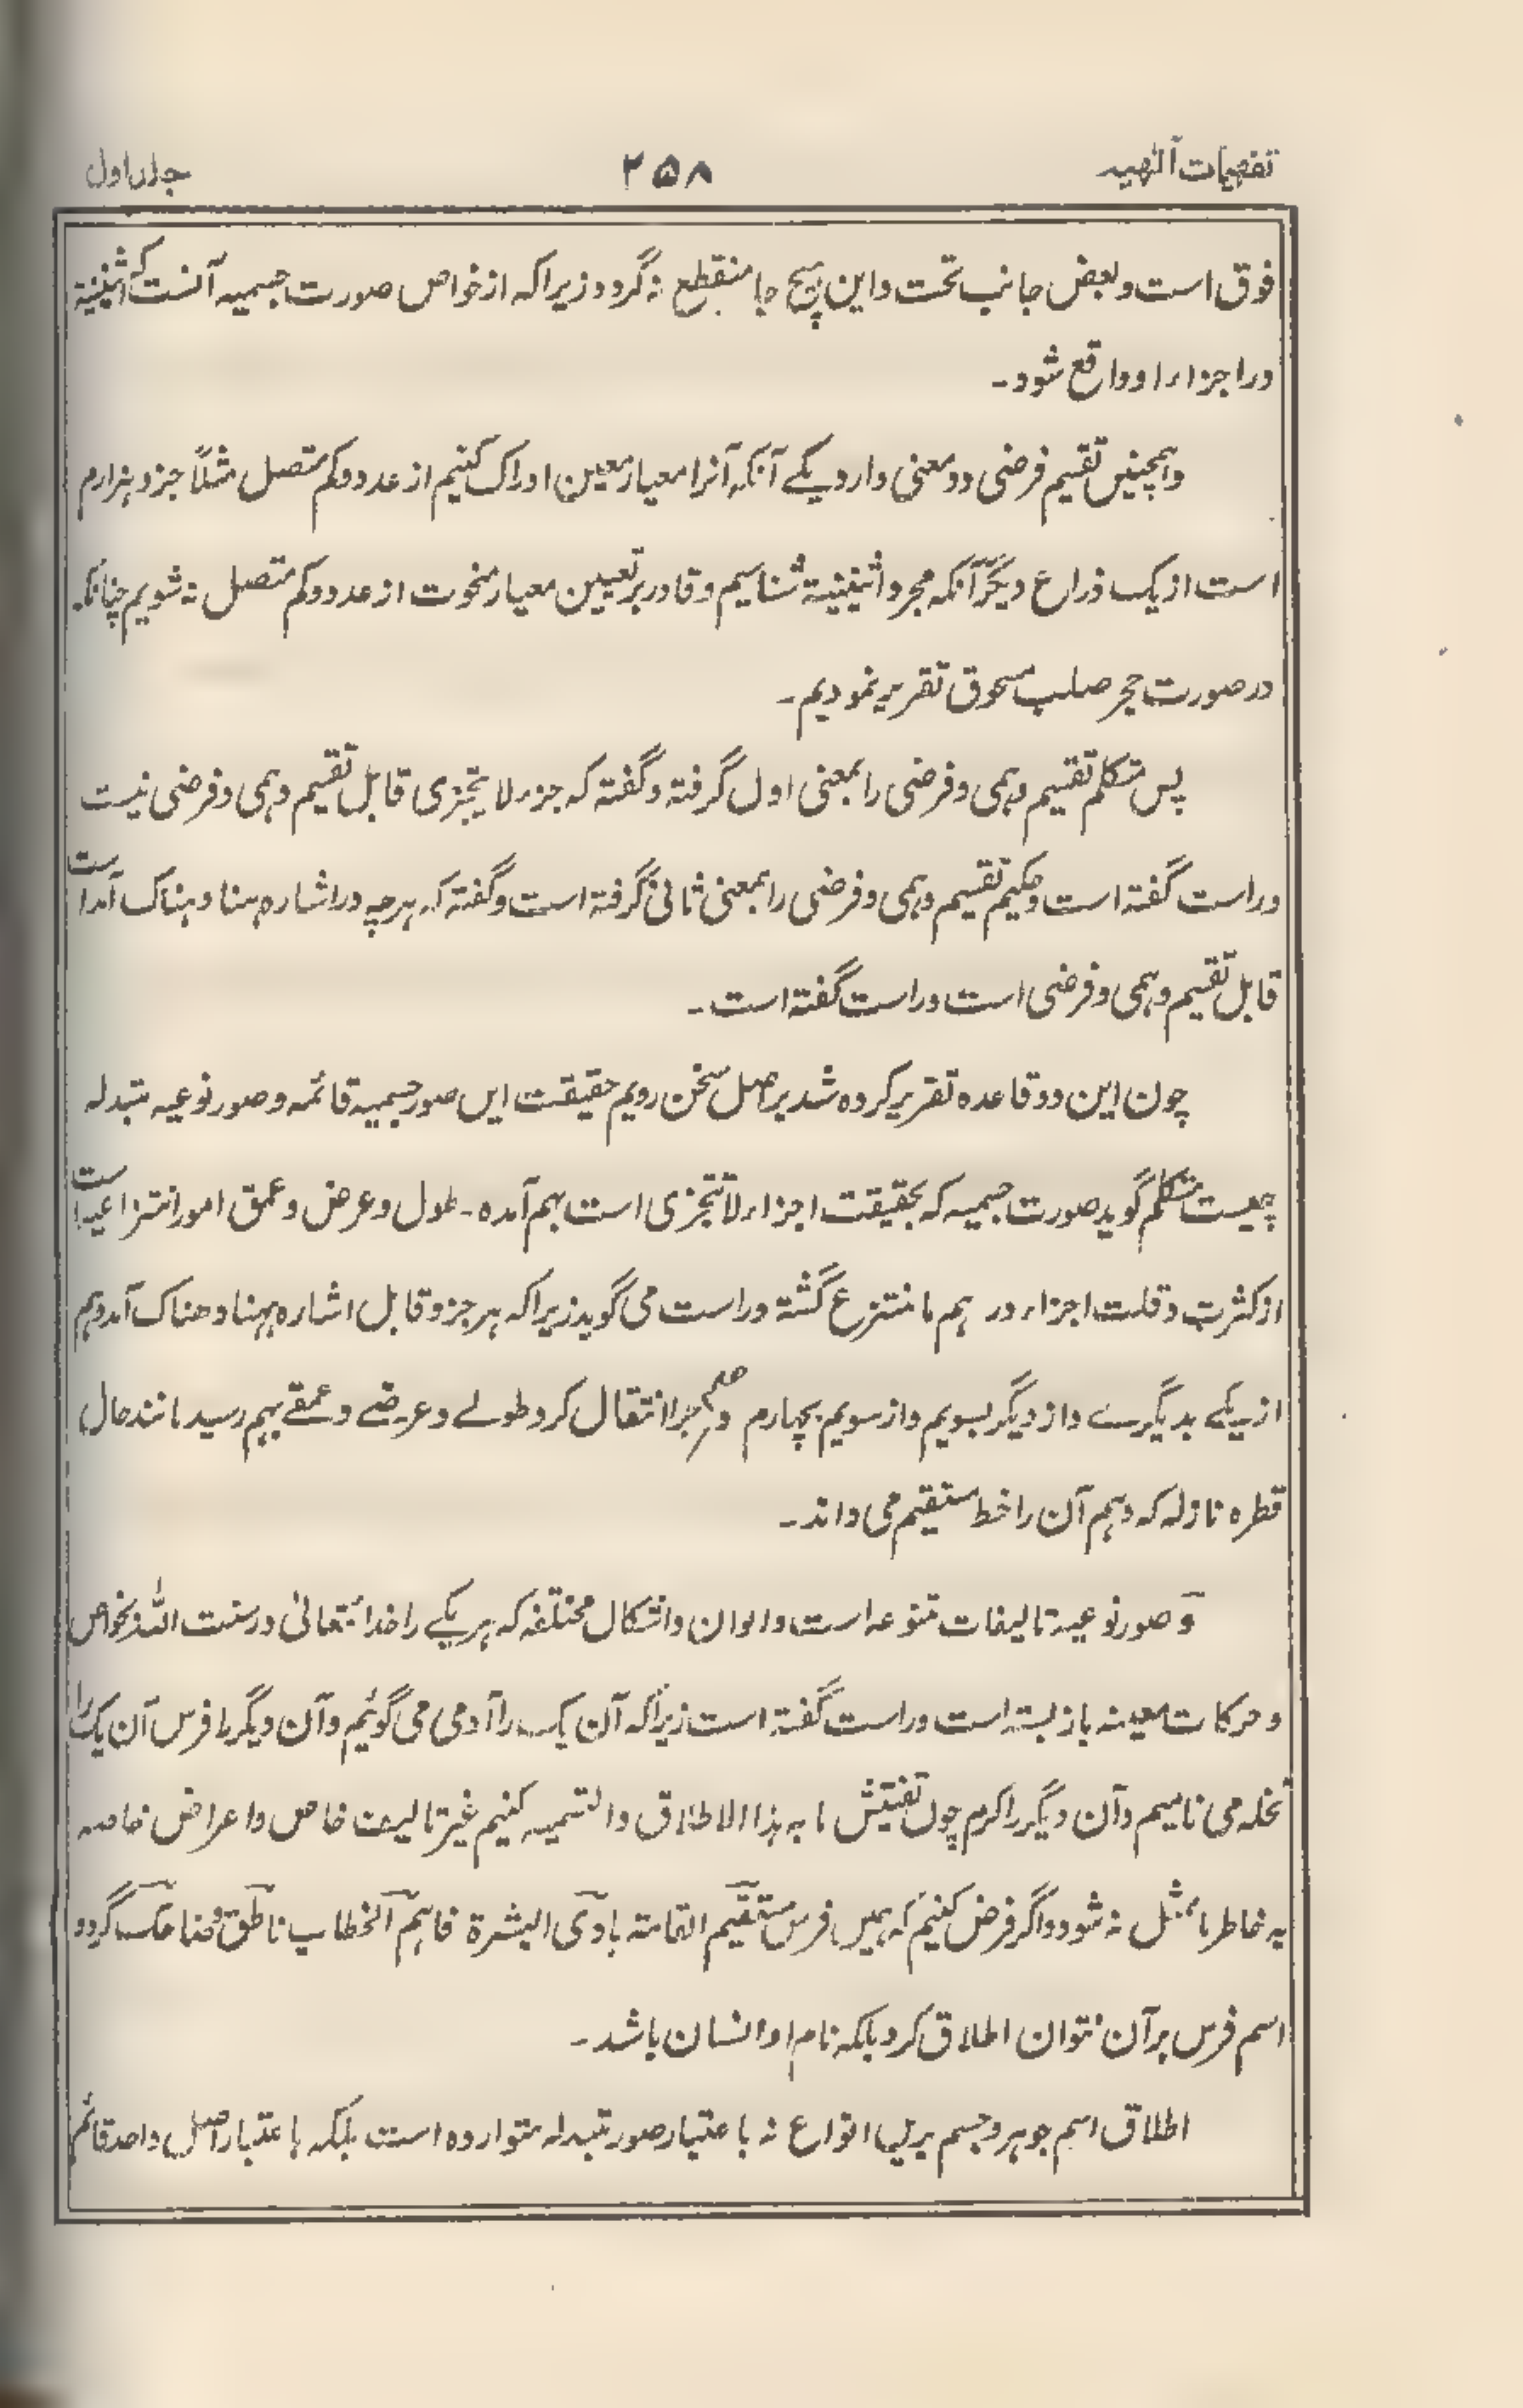 تفہیمات آلٰہیہ ۲۵۸ جلد اول
فوق است و بعض جانب تحت و این ہیچ جا منقطع نہ گردد زیرا کہ از خواص صورت جسمیہ آنست کہ اثنینیۃ
در اجزاء او واقع شود۔
و ہمچنیں تقسیم فرضی دو معنی دارد یکے آنکہ آنرا معیار معین ادراک کنیم از عدد و کم متصل مثلاً جزو ہزارم
است از یک ذراع دیگر آنکہ مجرد اثنینیۃ شناسیم و قادر بر تعیین معیار منحوت از عدد و کم متصل نہ شویم چنانکہ
در صورت حجر صلب مسحوق تقریر نمودیم۔
پس متکلم تقسیم وہمی و فرضی را بمعنی اول گرفتہ و گفتہ کہ جزء لا یتجزی قابل تقسیم وہمی و فرضی نیست
و راست گفتہ است و حکیم تقسیم وہمی و فرضی را بمعنی ثانی گرفتہ است و گفتہ کہ ہرچہ در اشارہ ہنا و ہناک آمدہ است
قابل تقسیم وہمی و فرضی است و راست گفتہ است۔
چون این دو قاعدہ تقریر کردہ شد بر اصل سخن رویم حقیقت ایں صور جسمیہ قائمہ و صور نوعیہ متبدلہ
چیست متکلم گوید صورت جسمیہ کہ بحقیقت اجزاء لا تتجزی است بہم آمدہ۔ طول و عرض و عمق امور انتزاعیہ است
از کثرت و قلت اجزاء در ہم ما منتزع گشتہ و راست می گوید زیرا کہ ہر جزو قابل اشارہ ہنا و ھناک آمد وہم
از یکے بدیگرے و از دیگر بسویم و از سویم بچہارم و ھلم جرا انتقال کرد طولے و عرضے و عمقے بہم رسید مانند حال
قطرہ نازلہ کہ وہم آن را خط مستقیم می داند۔
و صور نوعیہ تالیفات متنوعہ است و الوان و اشکال مختلفہ کہ ہر یکے را خدا تعالیٰ در سنت اللہ بخواص
و حرکات معینہ باز بستہ است و راست گفتہ است زیرا کہ آن یک را آدمی می گوئیم و آن دیگر را فرس آن یک را
نخلہ می نامیم و آن دیگر را کرم چوں تفتیش ما بہ ہذا الاطلاق و التسمیہ کنیم غیر تالیف خاص و اعراض خاصہ
بہ خاطر ما متمثل نہ شود و اگر فرض کنیم کہ ہمیں فرس مستقیم القامتہ بادی البشرۃ فاہم الخطاب ناطق و ضاحک گردد
اسم فرس بر آن نتوان اطلاق کرد بلکہ نام او انسان باشد۔
اطلاق اسم جوہر و جسم بریں انواع نہ باعتبار صور متبدلہ متواردہ است بلکہ باعتبار اصل واحد قائم